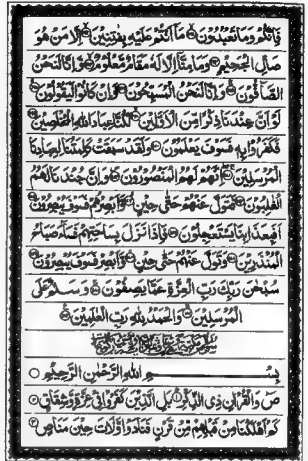 فَإِنَّكُمْ وَمَا تَعْبُدُونَ مَا أَنْتُمْ عَلَيْهِ بِفَاتِنِينَ إِلَّا مَنْ هُوَ
صَالِ الْجَحِيمِ وَمَا مِنَّا إِلَّا لَهُ مَقَامٌ مَعْلُومٌ وَإِنَّا لَنَحْنُ
الصَّافُّونَ وَإِنَّا لَنَحْنُ الْمُسَبِّحُونَ وَإِنْ كَانُوا لَيَقُولُونَ
لَوْ أَنَّ عِنْدَنَا ذِكْرًا مِنَ الْأَوَّلِينَ لَكُنَّا عِبَادَ اللَّهِ الْمُخْلَصِينَ
فَكَفَرُوا بِهِ فَسَوْفَ يَعْلَمُونَ وَلَقَدْ سَبَقَتْ كَلِمَتُنَا لِعِبَادِنَا
الْمُرْسَلِينَ إِنَّهُمْ لَهُمُ الْمَنْصُورُونَ وَإِنَّ جُنْدَنَا لَهُمُ
الْغَالِبُونَ فَتَوَلَّ عَنْهُمْ حَتَّى حِينٍ وَأَبْصِرْهُمْ فَسَوْفَ يُبْصِرُونَ
أَفَبِعَذَابِنَا يَسْتَعْجِلُونَ فَإِذَا نَزَلَ بِسَاحَتِهِمْ فَسَاءَ صَبَاحُ
الْمُنْذَرِينَ وَتَوَلَّ عَنْهُمْ حَتَّى حِينٍ وَأَبْصِرْ فَسَوْفَ يُبْصِرُونَ
سُبْحٰنَ رَبِّكَ رَبِّ الْعِزَّةِ عَمَّا يَصِفُونَ وَسَلٰمٌ عَلَى
الْمُرْسَلِينَ وَالْحَمْدُ لِلَّهِ رَبِّ الْعٰلَمِينَ
بِسْمِ اللَّهِ الرَّحْمٰنِ الرَّحِيمِ
ص وَالْقُرْاٰنِ ذِي الذِّكْرِ بَلِ الَّذِينَ كَفَرُوا فِي عِزَّةٍ وَشِقَاقٍ
كَمْ أَهْلَكْنَا مِنْ قَبْلِهِمْ مِنْ قَرْنٍ فَنَادَوْا وَلَاتَ حِينَ مَنَاصٍ